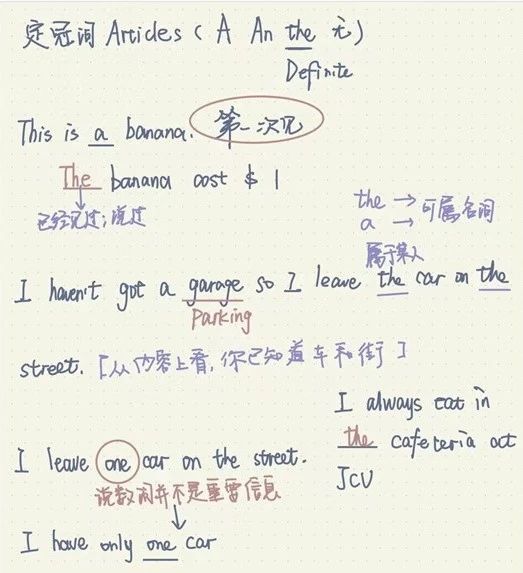 定冠词 Articles ( A An the 无 )
Definite
This is a banana. 第一次见
The banana cost $ 1
已经见过;说过
the → 可属名词
a →
属于某人
I haven't got a garage so I leave the car on the
Parking
street. [从内容上看,你已知道车和街 ]
I always eat in
the cafeteria at
JCU
I leave one car on the street.
说数词并不是重要信息
I have only one car